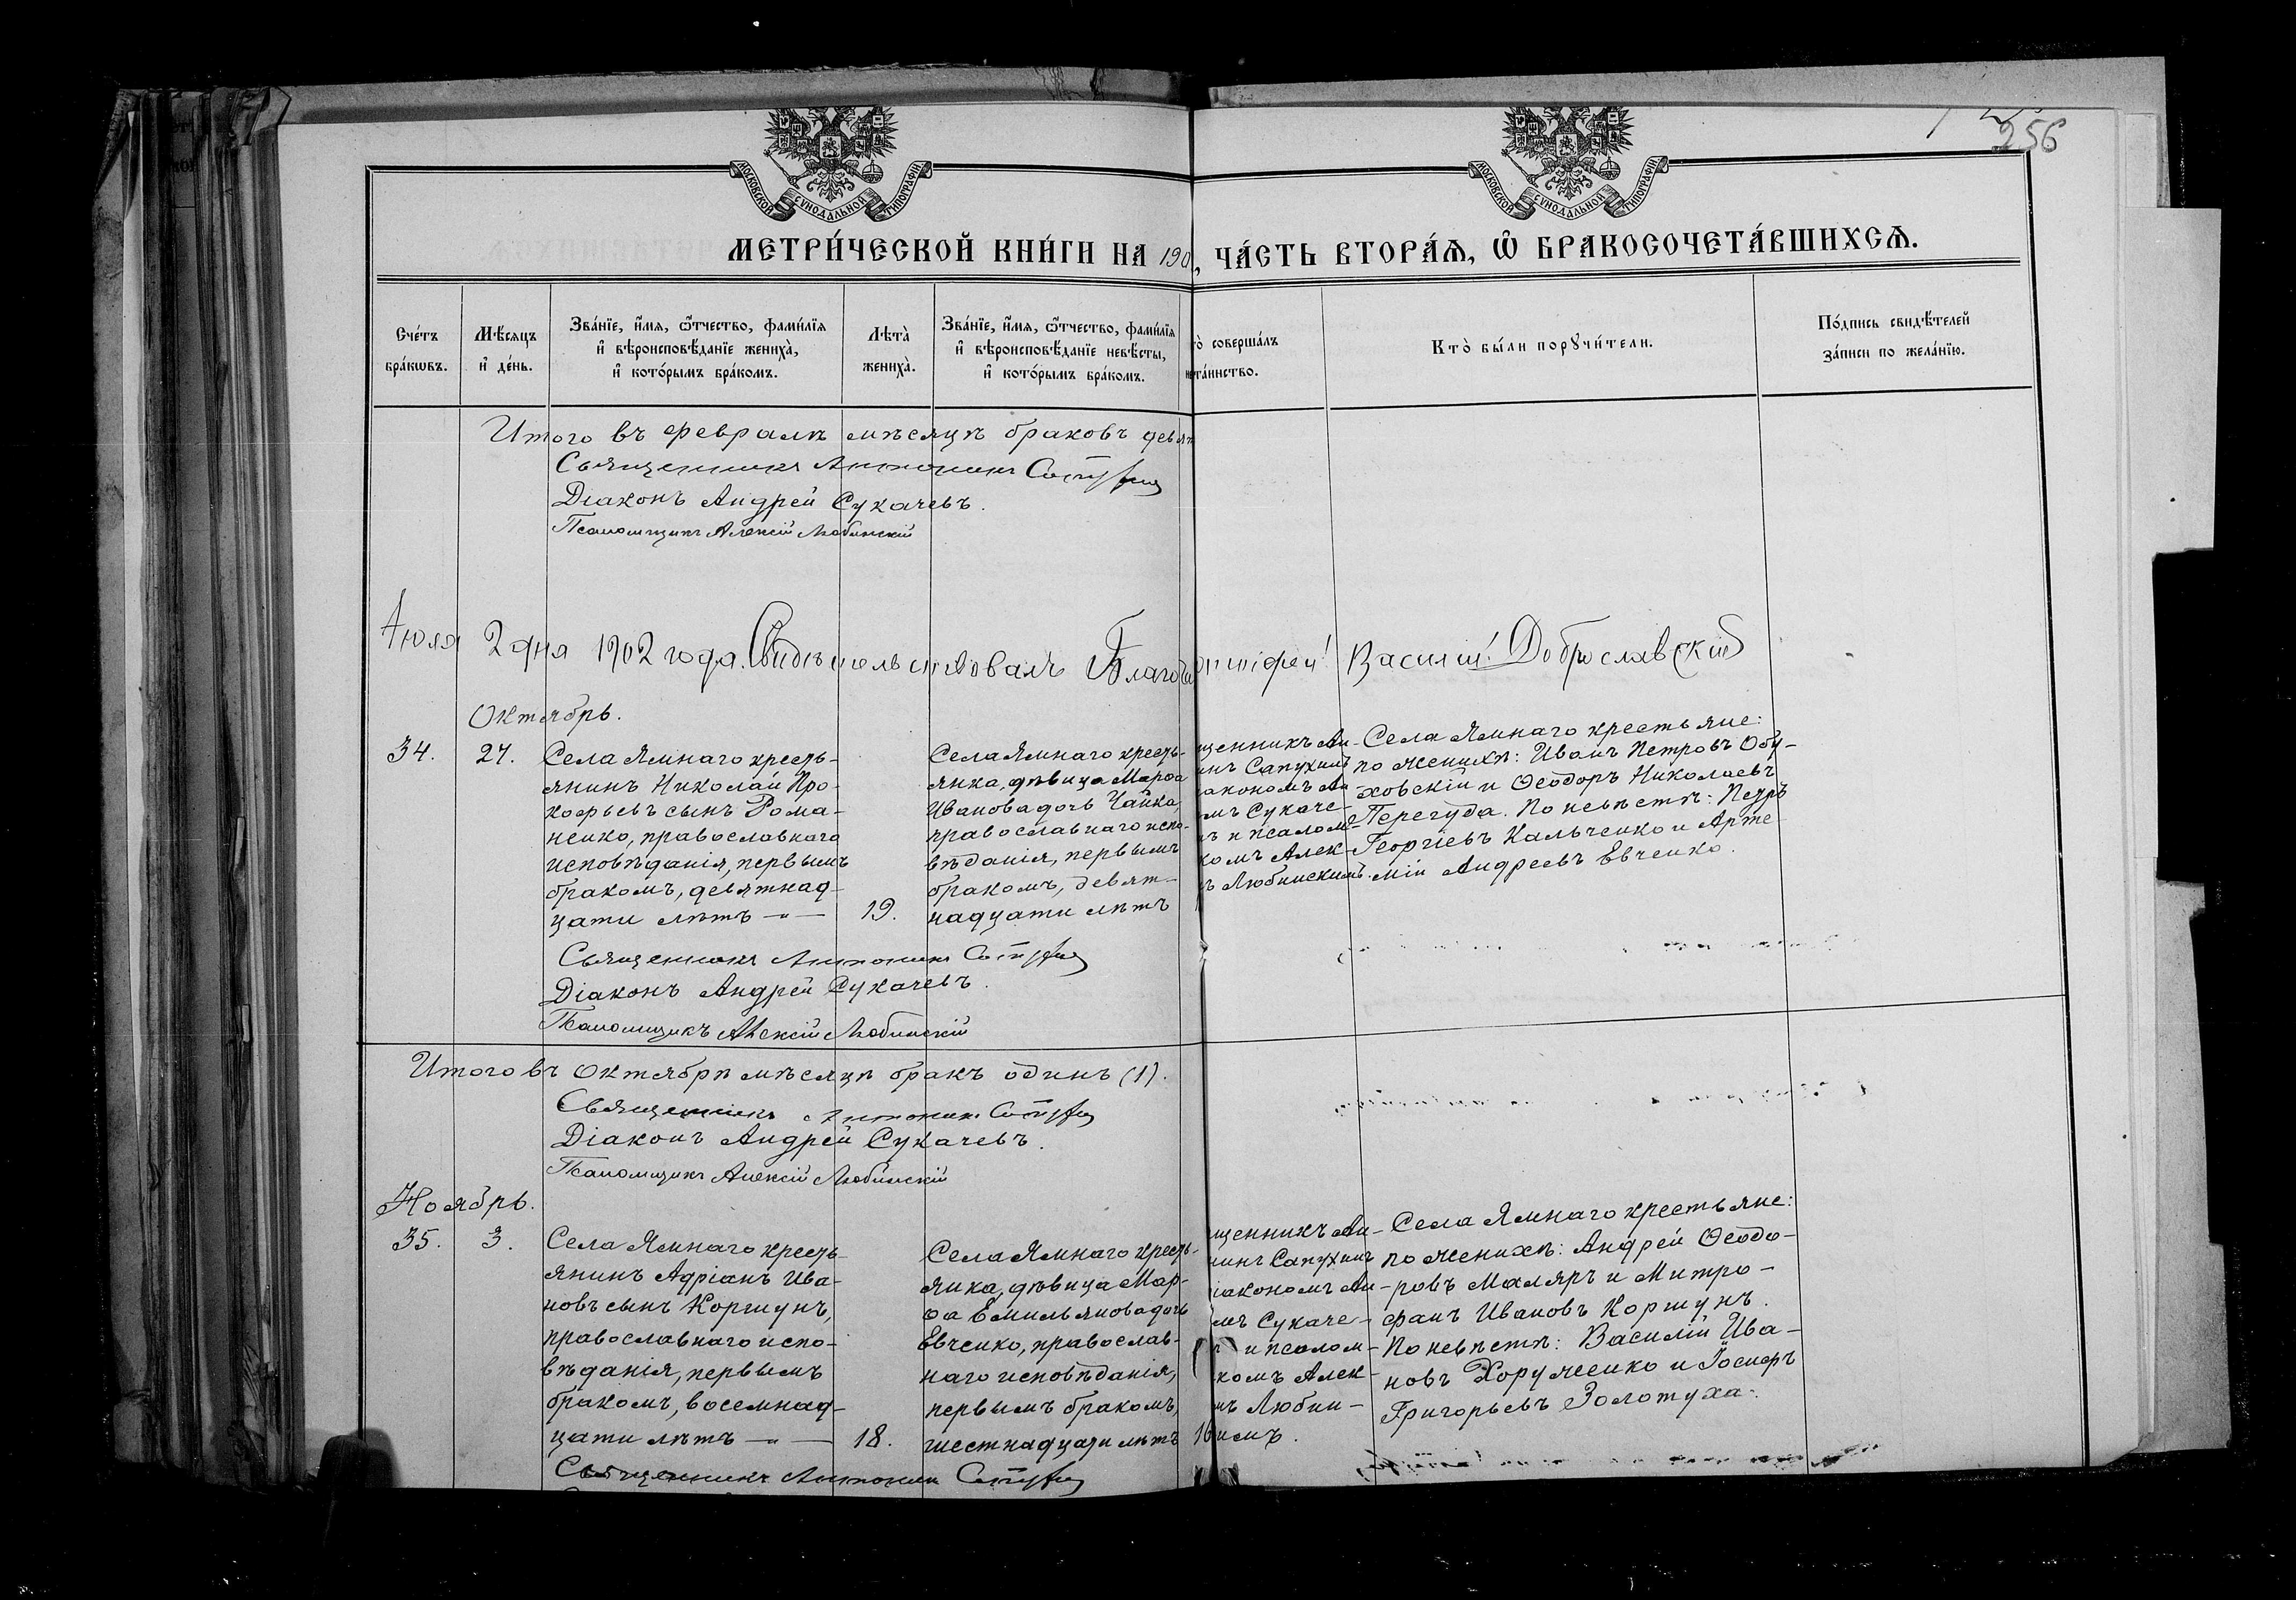 256
МОСКОВСКОЙ СѴНОДАЛЬНОЙ ТИПОГРАФІИ
МОСКОВСКОЙ СѴНОДАЛЬНОЙ ТИПОГРАФІИ
МЕТРИ́ЧЕСКОЙ КНИ́ГИ НА 190 , ЧА́СТЬ ВТОРА́Ѧ, Ѽ БРАКОСОЧЕТА́ВШИХСѦ.
Сче́тъ бра́кѡвъ.
Мѣ́сяцъ и҆ де́нь.
Зва́нїе, и҆́мя, ѻ҆́тчество, фами́лїя
и҆ вѣроисповѣ́данїе жениха̀,
и҆ кото́рымъ бра́комъ.
Лѣта̀ жениха̀.
Зва́нїе, и҆́мя, ѻ҆́тчество, фами́лїя
и҆ вѣроисповѣ́данїе невѣ́сты,
и҆ кото́рымъ бра́комъ.
то̀ соверша́лъ
та́инство.
Кто̀ бы́ли порꙋчи́тели.
По́дпись свидѣ́телей
за́писи по жела́нїю.
Итого въ февралѣ мѣсяцѣ браковъ девят
Священникъ Антонинъ Сапухин
Діаконъ Андрей Сукачевъ.
Псаломщикъ Алексій Любинскій
Іюля 2 дня 1902 года. Свидѣтельствовалъ Благоч Василій Доброславскій
Октябрь.
34. 27.
Села Ямнаго кресть-
янинъ Николай Про-
кофьевъ сынъ Рома-
ненко, православнаго
исповѣданія, первымъ
бракомъ, девятнад-
цати лѣтъ —„—
19.
Села Ямнаго кресть-
янка, дѣвица Марѳа
Иванова дочь Чайка,
православнаго испо-
вѣданія, первымъ
бракомъ, девят-
надцати лѣтъ
щенникъ Ан-
инъ Сапухинъ
акономъ Ан-
мъ Сукаче-
ъ и псалом-
комъ Алек-
ъ Любинскимъ.
Села Ямнаго крестьяне:
по женихѣ: Иванъ Петровъ Обу-
ховскій и Ѳеодоръ Николаевъ
Перегуда. По невѣстѣ: Петръ
Георгіевъ Кальченко и Арте-
мій Андреевъ Евченко.
Священникъ Антонинъ Сапухин
Діаконъ Андрей Сукачевъ.
Псаломщикъ Алексій Любинскій
Итого въ октябрѣ мѣсяцѣ бракъ одинъ (1).
Священникъ Антонинъ Сапухин
Діаконъ Андрей Сукачевъ.
Псаломщикъ Алексій Любинскій
Ноябрь.
35. 3.
Села Ямнаго кресть-
янинъ Адріанъ Ива-
новъ сынъ Коршунъ,
православнаго испо-
вѣданія, первымъ
бракомъ, восемнад-
цати лѣтъ —„—
18.
Села Ямнаго кресть-
янка, дѣвица Мар-
ѳа Емильянова дочь
Евченко, православ-
наго исповѣданія,
первымъ бракомъ,
шестнадцати лѣтъ
16
щенникъ Ан-
нинъ Сапухинъ
іакономъ Ан-
мъ Сукаче-
и псалом-
комъ Алек-
ъ Любин-
имъ.
Села Ямнаго крестьяне:
по женихѣ: Андрей Ѳеодо-
ровъ Маляръ и Митро-
фанъ Ивановъ Коршунъ.
По невѣстѣ: Василій Ива-
новъ Хорунженко и Іосифъ
Григорьевъ Золотуха.
Священникъ Антонинъ Сапухин